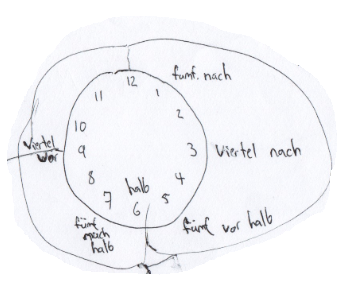 fümf. nach
12
11
1
10
2
Viertel
vor
9
3
viertel nach
8
4
halb
7
6
5
fümf vor halb
fümf
nach
halb